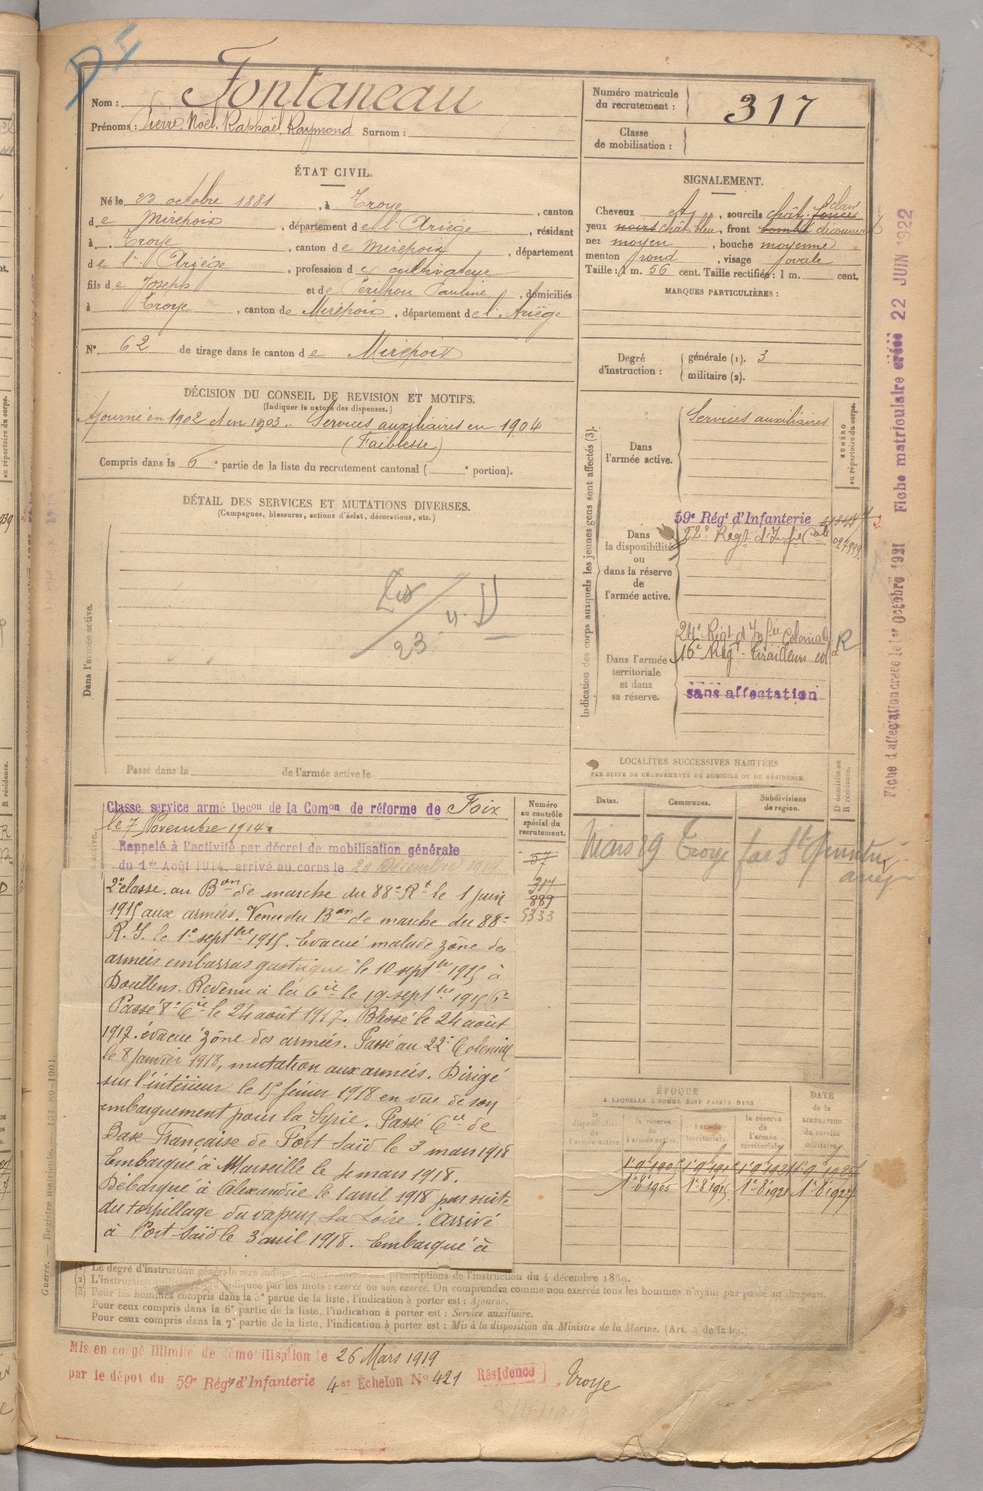 D I
Nom : Fontaneau
Prénoms : Pierre, Noël, Raphaël, Raymond Surnom :
Numéro matricule du recrutement : 317
Classe de mobilisation :
ÉTAT CIVIL.
Né le 23 octobre 1881, à Troye, canton
de Mirepoix, département de l'Ariège, résidant
à Troye, canton de Mirepoix, département
de l'Ariège, profession de cultivateur
fils de Joseph et de Pauline, domiciliés
à Troye, canton de Mirepoix, département de l'Ariège
N° 62 de tirage dans le canton de Mirepoix
SIGNALEMENT.
Cheveux , sourcils chât. foncés clair
yeux noirs chât. bleu, front bombé découvert
nez moyen, bouche moyenne
menton rond, visage ovale
Taille : 1 m. 56 cent. Taille rectifiée : 1 m. cent.
MARQUES PARTICULIÈRES :
Degré d'instruction : générale (1). 3
militaire (2).
DÉCISION DU CONSEIL DE REVISION ET MOTIFS.
(Indiquer la nature des dispenses.)
Ajourné en 1902 et en 1903. Services auxiliaires en 1904
(Faiblesse)
Compris dans la 6e partie de la liste du recrutement cantonal ( e portion).
DÉTAIL DES SERVICES ET MUTATIONS DIVERSES.
(Campagnes, blessures, actions d'éclat, décorations, etc.)
Dans l'armée active.
23
Passé dans la de l'armée active le
Indication des corps auxquels les jeunes gens sont affectés (3).
NUMÉRO au répertoire du corps.
Dans l'armée active.
Services auxiliaires
Dans la disponibilité ou dans la réserve de l'armée active.
59e Régt d'Infanterie
22e Régt d'Infie Cale
Dans l'armée territoriale et dans sa réserve.
24e Régt d'Infie Coloniale
16e Régt Tirailleurs
R
sans affectation
Fiche d'affectation créée le 1er Octobre 1921 Fiche matriculaire créée 22 JUIN 1922
LOCALITÉS SUCCESSIVES HABITÉES
PAR SUITE DE CHANGEMENTS DE DOMICILE OU DE RÉSIDENCE
Dates. Communes. Subdivisions de région. D domicile ou R résidence.
Mars 29 Troye par St Quentin
Numéro au contrôle spécial du recrutement.
57
317
889
5333
Classé service armé Décon de la Comon de réforme de Foix
le 7 Novembre 1914.
Rappelé à l'activité par décret de mobilisation générale
du 1er Août 1914, arrivé au corps le 20 Décembre 1914
2e classe au Bon de marche du 88e Rt le 1 juin
1915 aux armées. Venu du Bon de marche du 88e
R.I. le 1er septbre 1915. Evacué malade zône des
armées embarras gastrique le 10 septbre 1915 à
Doullens. Revenu à la Cie le 19 septbre 1915
Passé 8e Cie le 24 août 1917. Blessé le 24 août
1917. évacué zône des armées. Passé au 22e Colonial
le 8 janvier 1918, mutation aux armées. Dirigé
sur l'intérieur le 15 février 1918 en vue de son
embarquement pour la Syrie. Passé Cie de
Base Française de Port Saïd le 3 mars 1918
Embarqué à Marseille le 4 mars 1918.
Débarqué à Alexandrie le 1 avril 1918 par suite
du torpillage du vapeur La Loire. Arrivé
à Port Saïd le 3 avril 1918. Embarqué à
ÉPOQUE
À LAQUELLE L'HOMME DOIT PASSER DANS
la disponibilité de l'armée active. la réserve de l'armée active. l'armée territoriale. la réserve de l'armée territoriale.
DATE de la LIBÉRATION du service militaire.
1-8-1905 1-8-1915 1-8-1921 1-8-1927
(1) Le degré d'instruction générale sera indiqué prescriptions de l'instruction du 4 décembre 1889.
(2) L'instruction indiquée par les mots : exercé ou non exercé. On comprendra comme non exercés tous les hommes n'ayant pas passé au drapeau.
(3) Pour les hommes compris dans la 5e partie de la liste, l'indication à porter est : Ajourné.
Pour ceux compris dans la 6e partie de la liste, l'indication à porter est : Service auxiliaire.
Pour ceux compris dans la 7e partie de la liste, l'indication à porter est : Mis à la disposition du Ministre de la Marine.
Mis en congé illimité de démobilisation le 26 Mars 1919
par le dépôt du 59e Régt d'Infanterie 4er Echelon N° 421 Résidence Troye